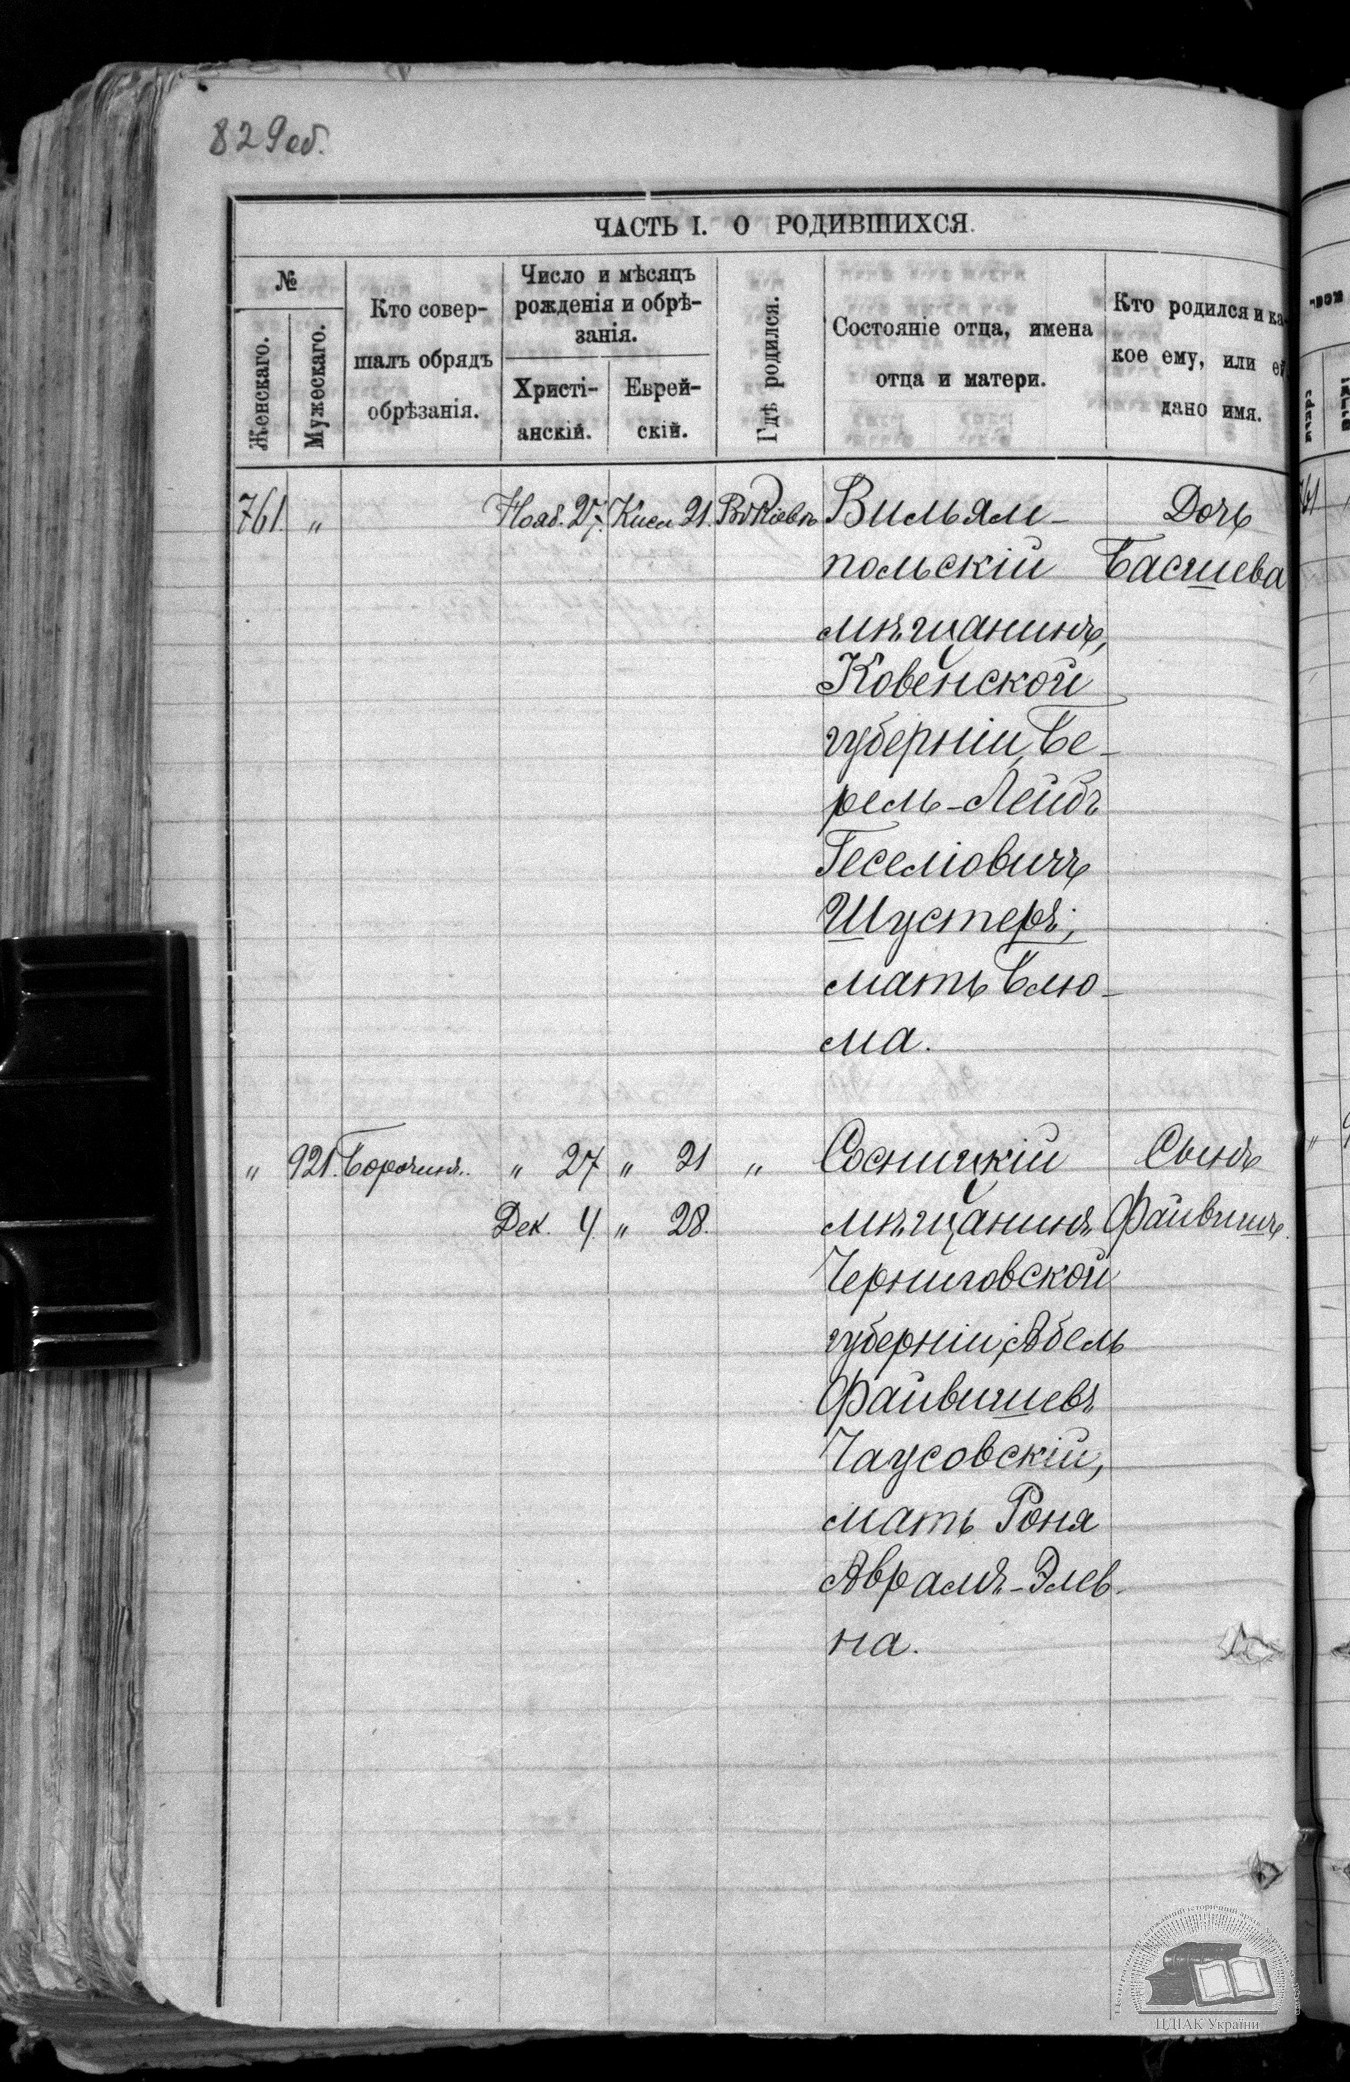 829об.
ЧАСТЬ I. О РОДИВШИХСЯ.
№
Женскаго.
Мужескаго.
Кто совер-
шалъ обрядъ
обрѣзанія.
Число и мѣсяцъ
рожденія и обрѣ-
занія.
Христі-
анскій.
Еврей-
скій.
Гдѣ родился.
Состояніе отца, имена
отца и матери.
Кто родился и ка-
кое ему, или ей
дано имя.
761. " Нояб. 27. Кисл 21. Въ Кіевѣ Вильям- Дочь
польскій Басшева
мѣщанинъ,
Ковенской
губерніи, Бе-
рель-Лейбъ
Геселіовичъ
Шустеръ;
мать Блю-
ма.
" 921. Борочинъ. " 27 " 21 " Сосницкій Сынъ
Дек. 4 " 28. мѣщанинъ Файвишъ.
Черниговской
губерніи, Абель
Файвишевъ
Чаусовскій,
мать Роня
Аврамъ-Элев-
на.
ЦДІАК України